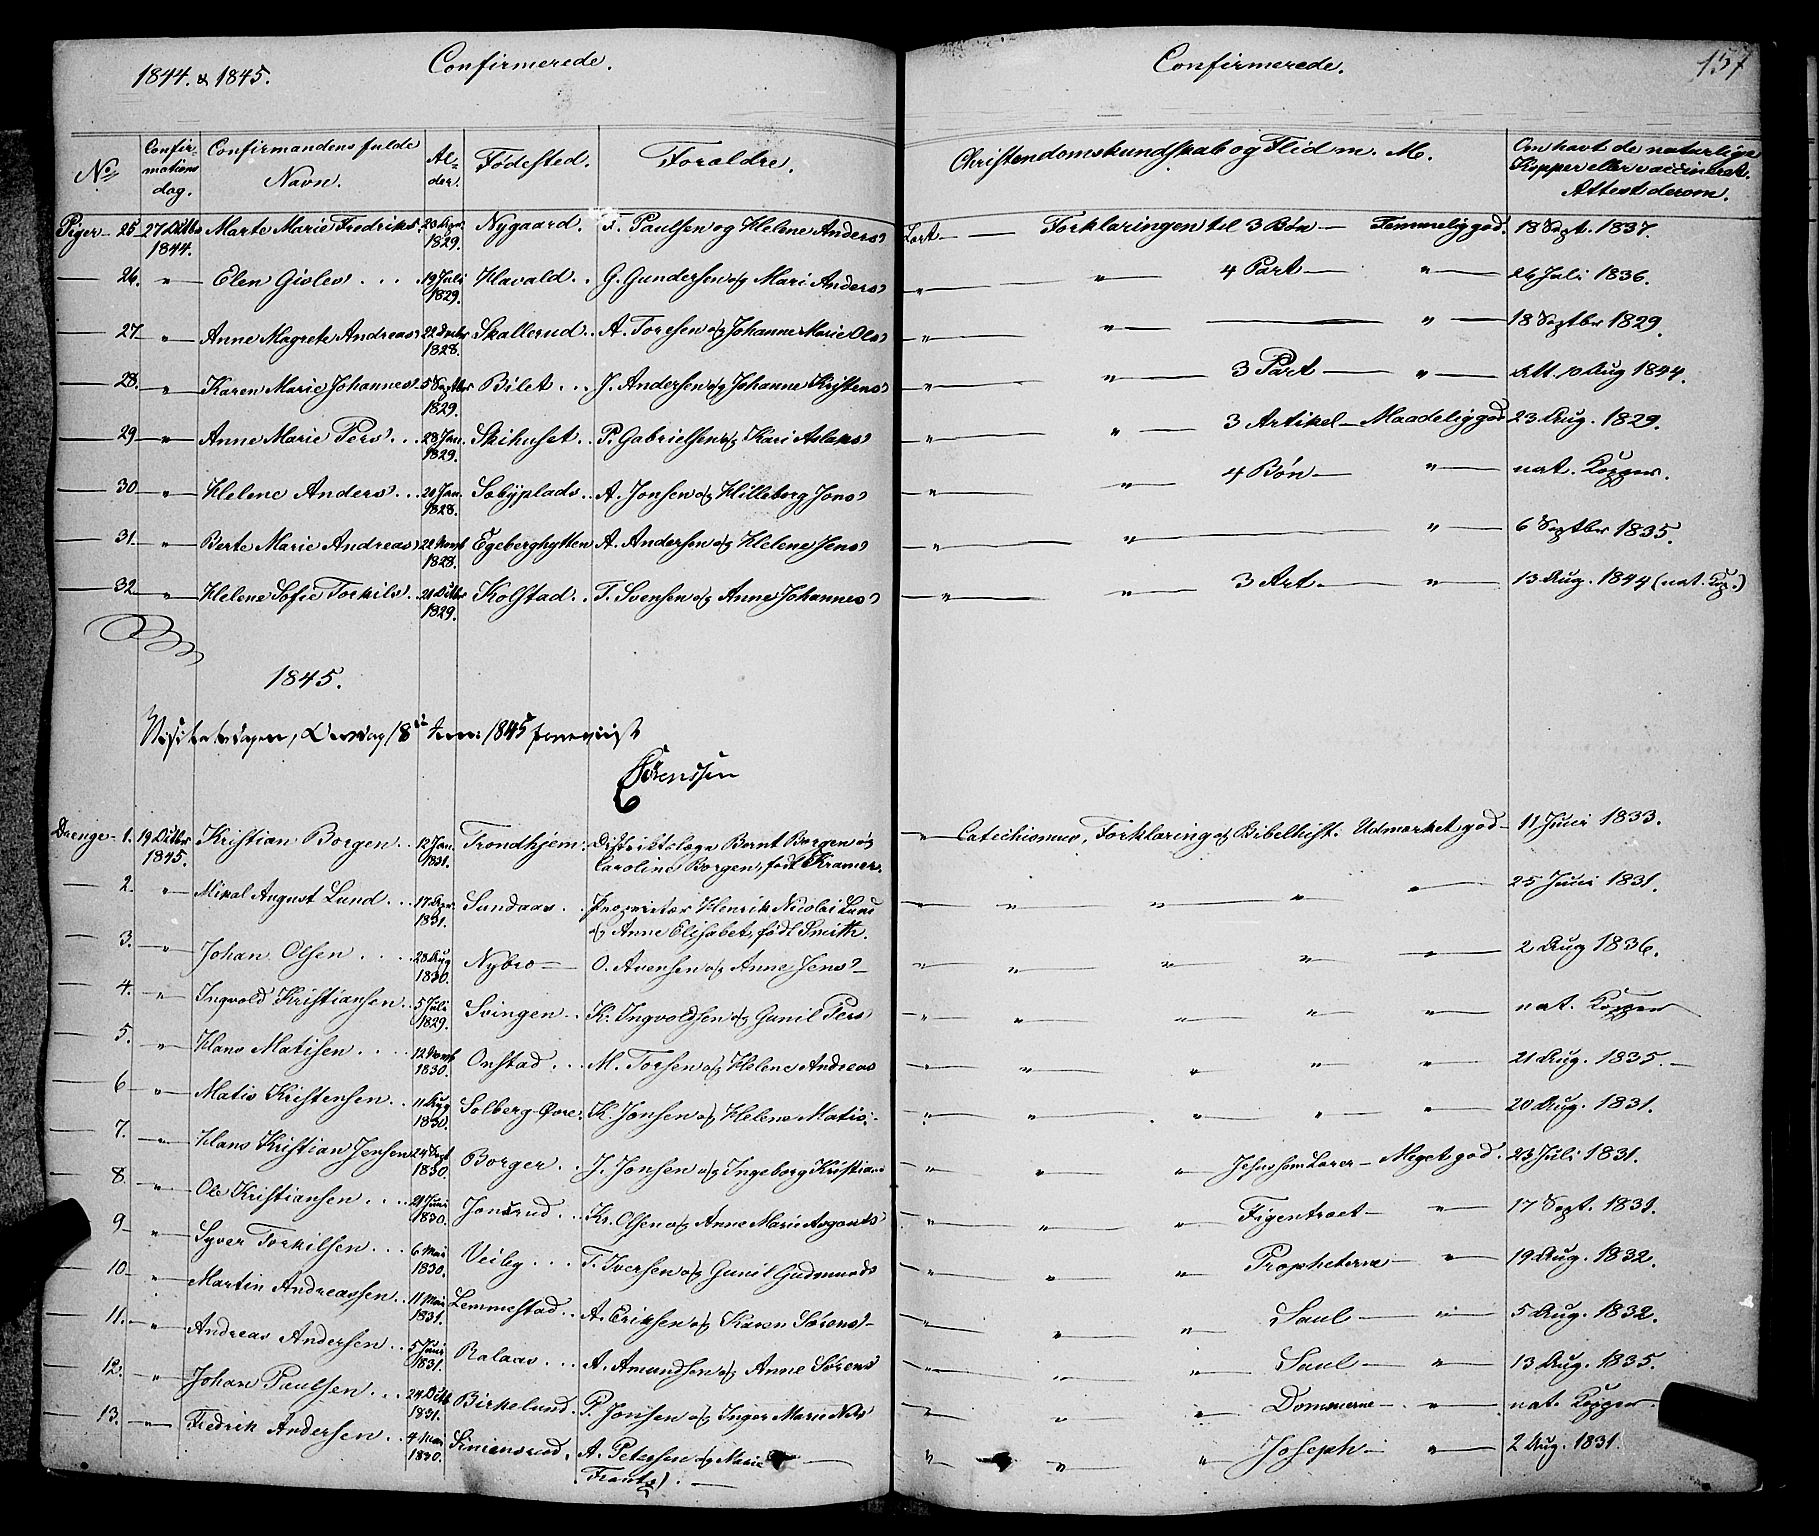 1844. & 1845. Confirmerede. Confirmerede. 157
No. Confirmations dag. Confirmandens fulde Navn. Alder. Fødested. Forældre. Christendomskundskab og Flid m. M. Om havt de naturlige Kopper eller vaccineret. Attest derom.
Piger — 25. 27 Octbr 1844. Marte Marie Fredriks 1829. Nygaard. F. Paulsen og Helene Anders Lært — Forklaringen til 3 Bøn — Temmelig god. 18 Sept. 1837.
— 26. " Elen Gislev ... 19 Juli 1829. Havald .. G. Gundersen og Mari Anders " " 4 Part — " 26 Juli 1836.
— 27 " Anne Magrete Andreas 1828. Skallerud .. A. Toresen og Johanne Marie Ols " " — " 18 Septbr 1829.
— 28. " Karen Marie Johannes 5 Septbr 1829. Bilet ... J. Andersen og Johanne Kristens " " 3 Part — " Att. 10 Aug 1844.
— 29 " Anne Marie Pers ... 28 Jan. 1829. Skihuset .. P. Gabrielsen og Kari Aslaks " " 3 Artikel — Maadelig god 23 Aug. 1829.
— 30 " Helene Anders ... 20 Jan. 1828. Sobyplads .. A. Jonsen og Hilleborg Jons " " 4 Bøn — " nat. Kopper.
— 31. " Berte Marie Andreas 1828. Egeberghytten A. Andersen og Helene Jens " " — " 6 Septbr 1835.
— 32 " Helene Sofie Torkils .. 1829. Kolstad .. T. Svensen og Anne Johannes " " 3 Art. — " 13 Aug. 1844 (nat. Kop.)
1845.
Visitatsdagen, 18 1845
Sørenssen
Drenge — 1. 19 Octbr 1845. Kristian Borgen .. 12 Jan. 1831. Trondhjem. Distriktslæge Bernt Borgen og " Catechismus, Forklaring og Bibelhist. Udmærket god — 11 Juni 1833.
Caroline Borgen, født Kramer.
— 2. " Mikal August Lund ... 1831. Sundaas .. Proprietær Henrik Nicolai Lund — " " " " 25 Juni 1831.
og Anne Elisabet, født Smith.
— 3. " Johan Olsen .... 28 Aug 1830. Nybro — O. Avensen og Anne Jens — " " " " " 2 Aug 1836.
— 4. " Ingvold Kristiansen .. 5 Juli 1829. Svingen .. K. Ingvoldsen og Gunil Pers " " " " " nat. Kopper
— 5. " Hans Matisen .... 1830. Onstad ... M. Torsen og Helene Andreas " " " " " 21 Aug. 1835. —
— 6 " Matis Kristensen .. 11 Aug 1830. Solberg-Øvre. K. Jonsen og Helene Matis. " " " " " 20 Aug. 1831.
— 7. " Hans Kristian Jensen 24 Sept 1830. Borger .. J. Jonsen og Ingeborg Kristians " " " Jesus som Lærer — Meget god. 23 Juli 1831.
— 8 " Ole Kristiansen .... 21 Juni 1830. Jonsrud .. Kr. Olsen og Anne Marie " " " Figentræet — " 17 Sept. 1831.
— 9 " Syver Torkilsen ... 6 Mai 1830. Veiby ... T. Iversen og Gunil Gudmunds " " " Propheterne — " 19 Aug. 1832.
— 10 — " Martin Andreassen .. 11 Mai 1831. Lemmestad .. A. Eriksen og Karen Sørens — " " " Saul — " 5 Aug. 1832.
— 11. " Andreas Andersen .. 5 Juni 1831. Ralaas ... A. Amundsen og Anne Sørens " " " Saul — " 13 Aug. 1835.
— 12. " Johan Paulsen ... 24 Octb 1831. Birkelund. P. Jonsen og Inger Marie Nils " " " Dommerne — " nat. Kopper.
— 13. " Fredrik Andersen .. 4 Mai 1830. A. Petersen og Marie " " " Joseph — " 2 Aug. 1831.
Frants. —